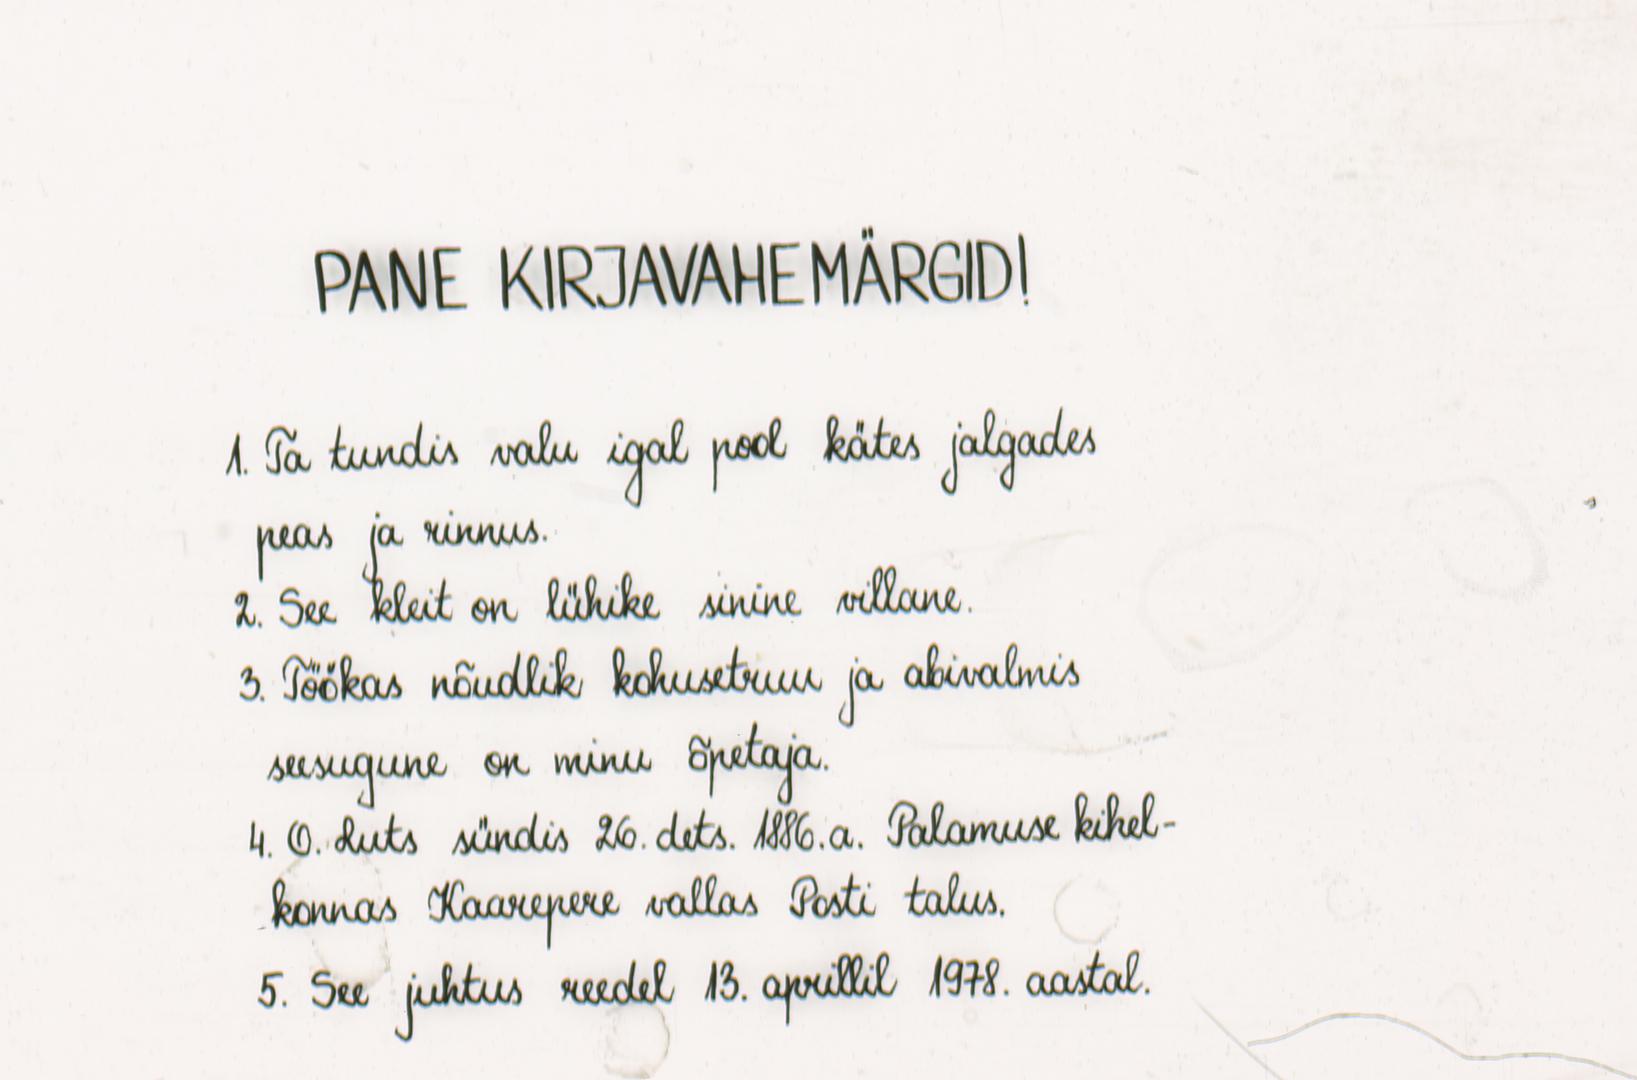 PANE KIRJAVAHEMÄRGID!
1. Ta tundis valu igal pool kätes jalgades
peas ja rinnus.
2. See kleit on lühike sinine villane.
3. Töökas nõudlik kohusetruu ja abivalmis
seesugune on minu õpetaja.
4. O. Luts sündis 26. dets. 1886.a. Palamuse kihel-
konnas Kaarepere vallas Posti talus.
5. See juhtus reedel 13. aprillil 1978. aastal.